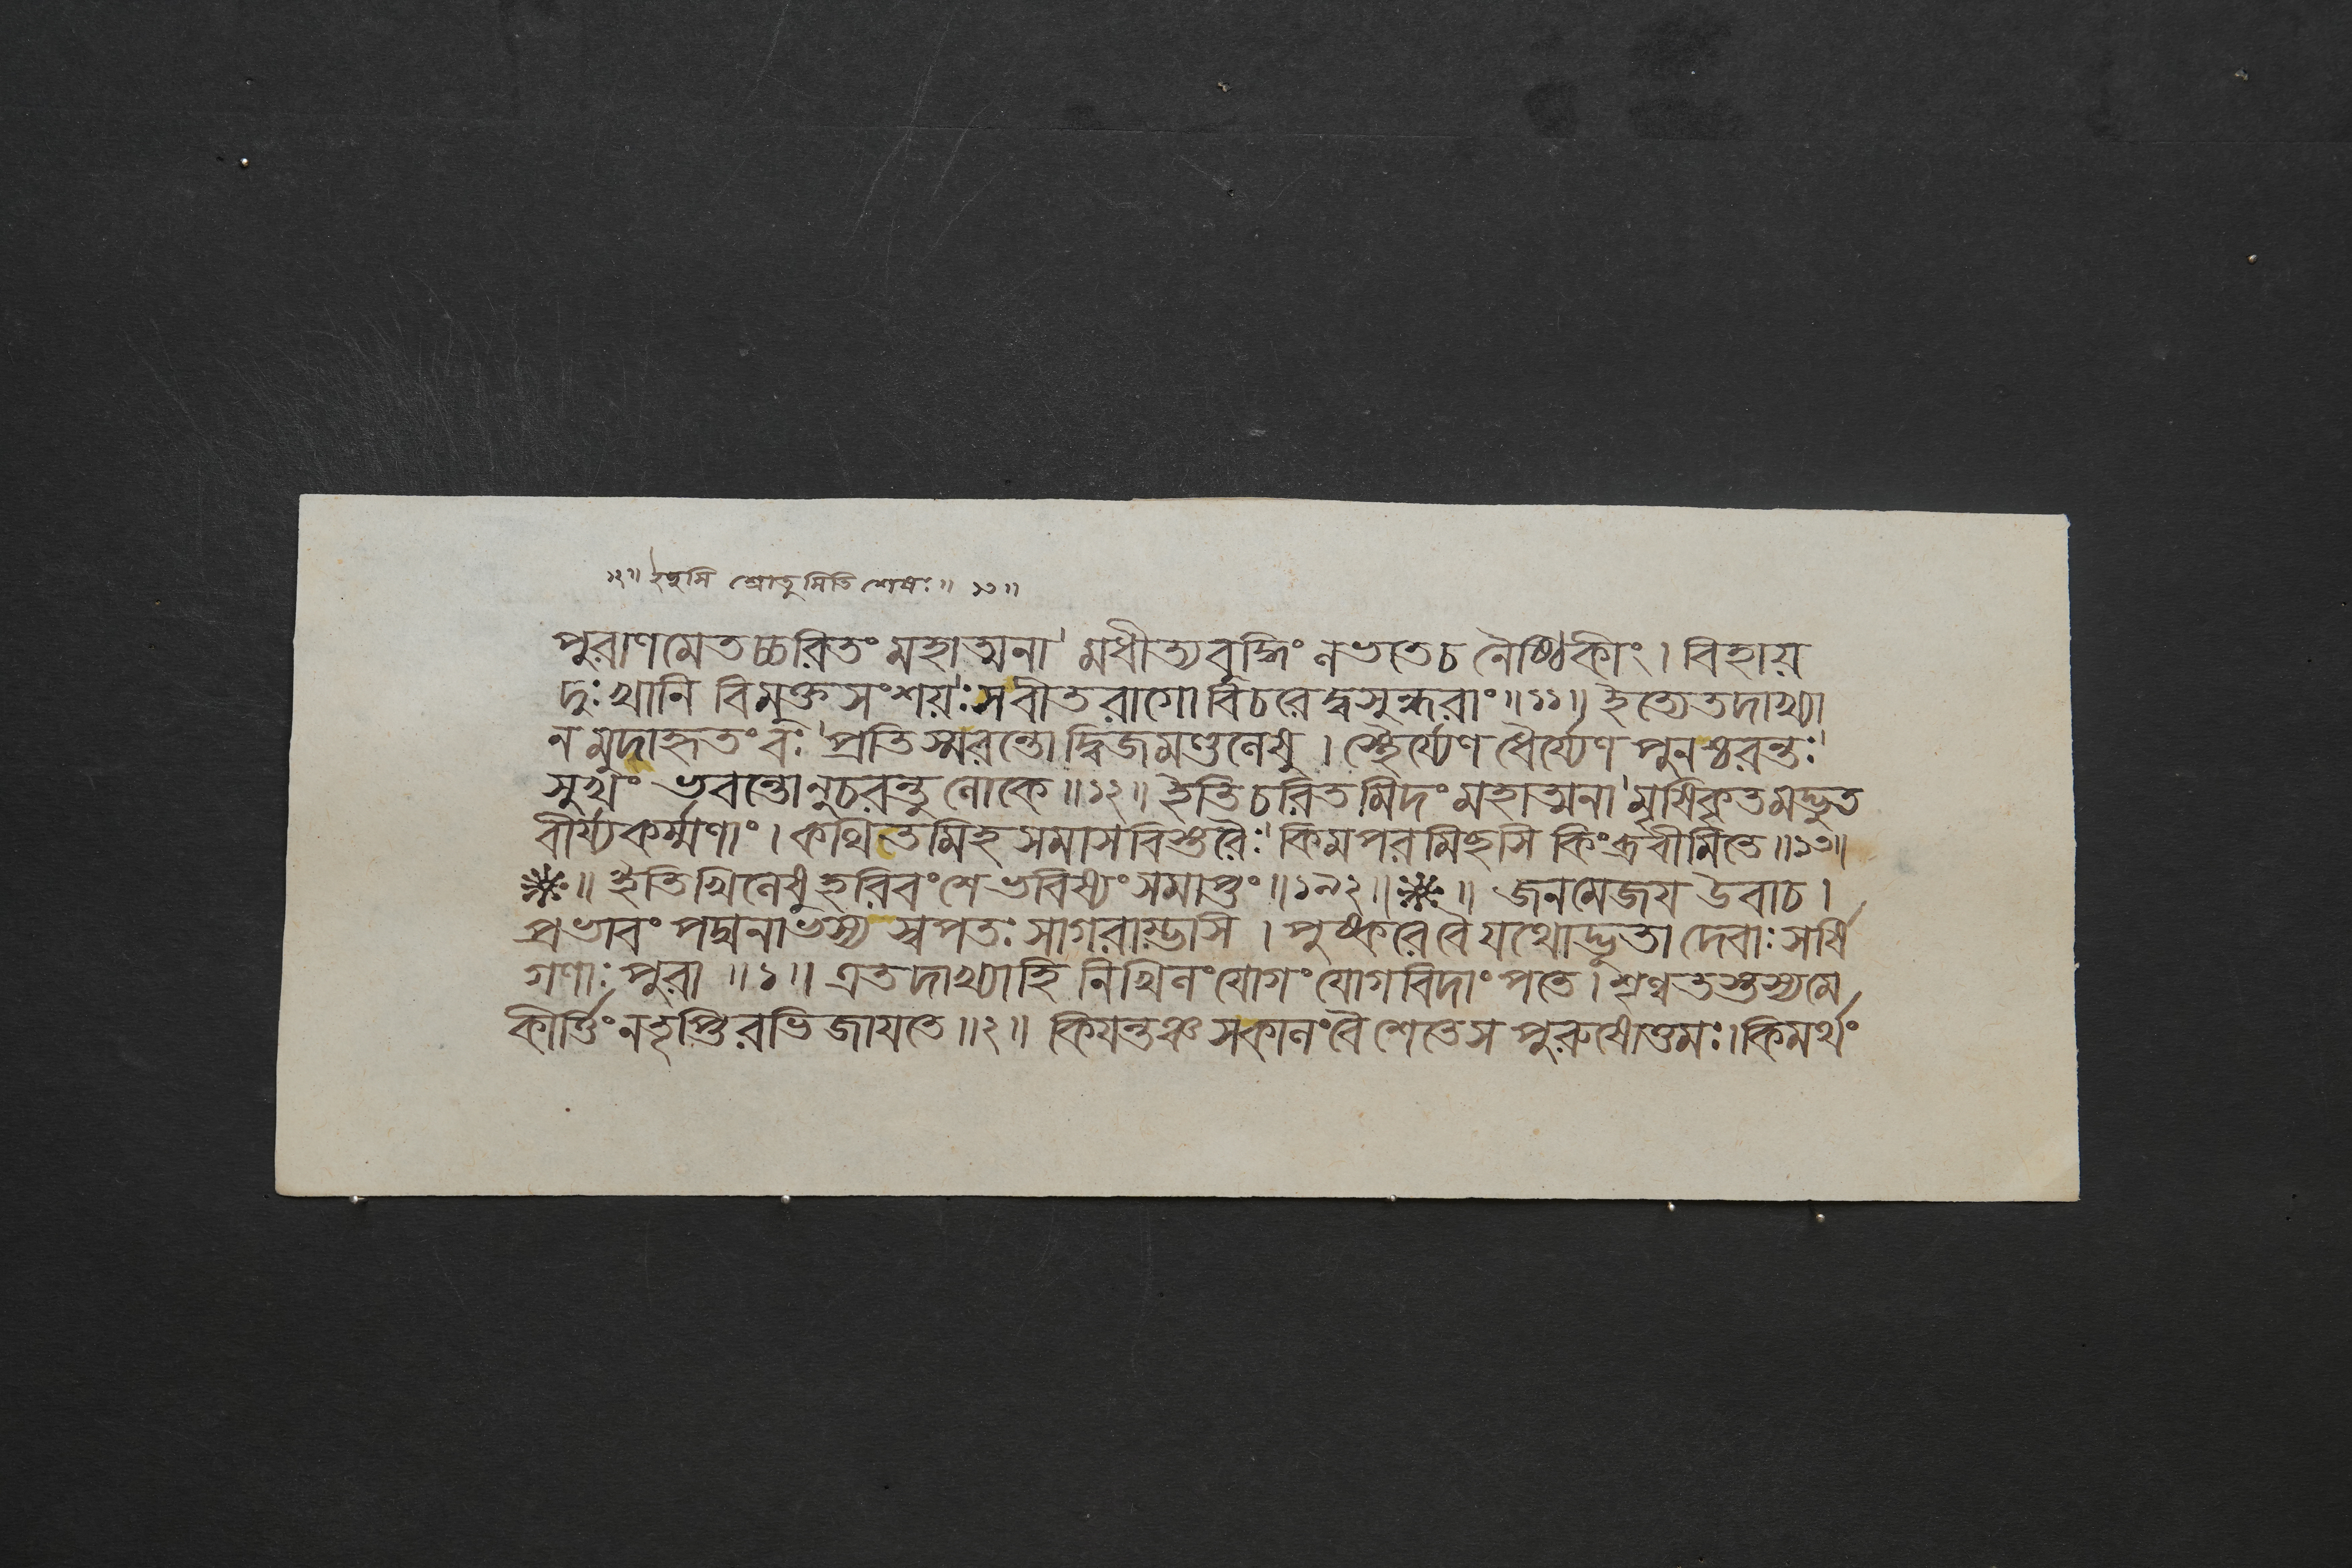 ১২॥ ইছসি শ্রোতুমিতি শেষঃ॥ ১৩॥
পুরাণমেতচ্চরিতং মহাত্মনা মধীত্যবুদ্ধিং লভতেচ নৈষ্ঠিকীং। বিহায়
দুঃখানি বিমুক্তসংশয়ঃ সবীতরাগো বিচরেদ্বসুন্ধরাং॥১১॥ ইত্যেতদাখ্যা
নমুদাহৃতংবঃ প্রতিস্মরন্তো দ্বিজমণ্ডলেষু। স্থৈর্য্যেণ ধৈর্য্যেণ পুনশ্চরন্তঃ
সুখং ভবন্তোনুচরন্তু লোকে॥১২॥ ইতিচরিতমিদংমহাত্মনা মৃষিকৃতমদ্ভুত
বীর্য্যকর্ম্মণাং। কথিতমিহ সমাসবিস্তরৈঃ কিমপরমিছসি কিংব্রবীমিতে॥১৩॥
॥ ইতিখিলেষুহরিবংশেভবিষ্যংসমাপ্তং॥১৯২॥ ॥ জনমেজয় উবাচ।
প্রভাবং পদ্মনাভস্য স্বপতঃ সাগরাম্ভসি। পুষ্করেবৈ যথোদ্ভুতা দেবাঃ সর্ষি
গণাঃ পুরা॥১॥ এতদাখ্যাহি নিখিলংযোগং যোগবিদাংপতে। শৃণ্বতস্তস্যমে
কীর্ত্তিং নতৃপ্তিরভিজায়তে॥২॥ কিয়ন্তঞ্চ সকালংবৈ শেতেস পুরুষোত্তমঃ। কিমর্থং